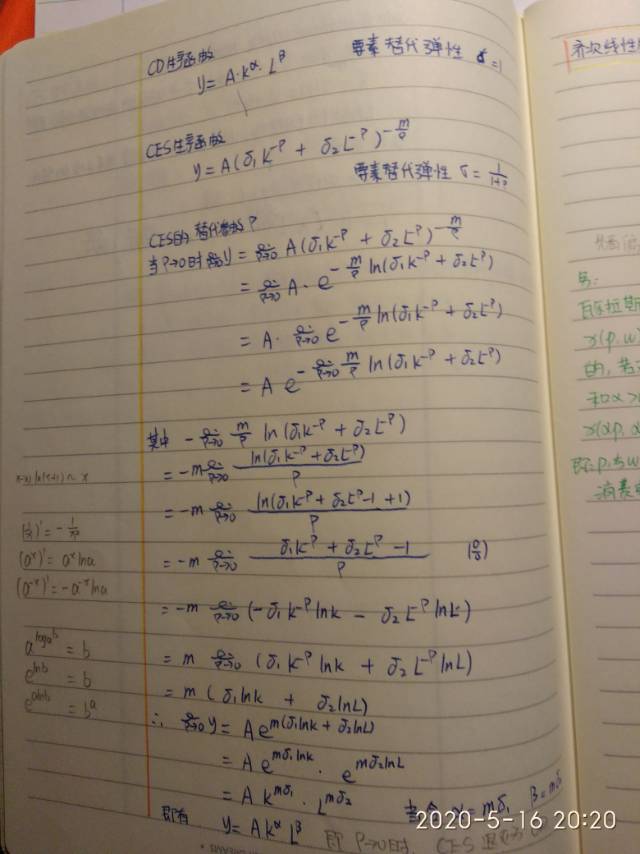 CD生产函数
y = A·K^α·L^β
要素替代弹性 σ=1
CES生产函数
y = A(δ₁K^-ρ + δ₂L^-ρ)^-m/ρ
要素替代弹性 σ = 1/(1+ρ)
CES的替代参数 ρ
当ρ→0时 lim ρ→0 y = lim ρ→0 A(δ₁K^-ρ + δ₂L^-ρ)^-m/ρ
= lim ρ→0 A·e^(-m/ρ ln(δ₁K^-ρ + δ₂L^-ρ))
= A· lim ρ→0 e^(-m/ρ ln(δ₁K^-ρ + δ₂L^-ρ))
= A e^(- lim ρ→0 m/ρ ln(δ₁K^-ρ + δ₂L^-ρ))
其中 - lim ρ→0 m/ρ ln(δ₁K^-ρ + δ₂L^-ρ)
= -m lim ρ→0 ln(δ₁K^-ρ + δ₂L^-ρ)/ρ
= -m lim ρ→0 ln(δ₁K^-ρ + δ₂L^-ρ-1 +1)/ρ
= -m lim ρ→0 (δ₁K^-ρ + δ₂L^-ρ -1)/ρ (0/0)
= -m lim ρ→0 (-δ₁K^-ρ lnK - δ₂L^-ρ lnL)
= m lim ρ→0 (δ₁K^-ρ lnK + δ₂L^-ρ lnL)
= m(δ₁lnK + δ₂lnL)
∴ lim ρ→0 y = A e^m(δ₁lnK + δ₂lnL)
= A e^mδ₁lnK · e^mδ₂lnL
= A K^mδ₁ · L^mδ₂
当令 α = mδ₁ β = mδ₂
即有 y = A K^α L^β
即 ρ→0时, CES
ln(x+1) ~ x
(a^x)' = a^x lna
(a^-x)' = -a^-x lna
a^log_a b = b
e^lnb = b
e^alnb = b^a
齐次线性
瓦尔拉斯
x(p,w)
的,若
和α>
x(αp,α
即:p,与w
消费
2020-5-16 20:20